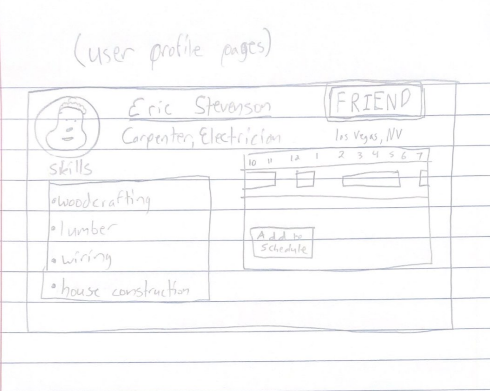 (user profile pages)
Eric Stevenson
FRIEND
Carpenter, Electrician
los Vegas, NV
Skills
10 11 12 1 2 3 4 5 6 7
•woodcrafting
•lumber
•wiring
•house construction
Add to
Schedule